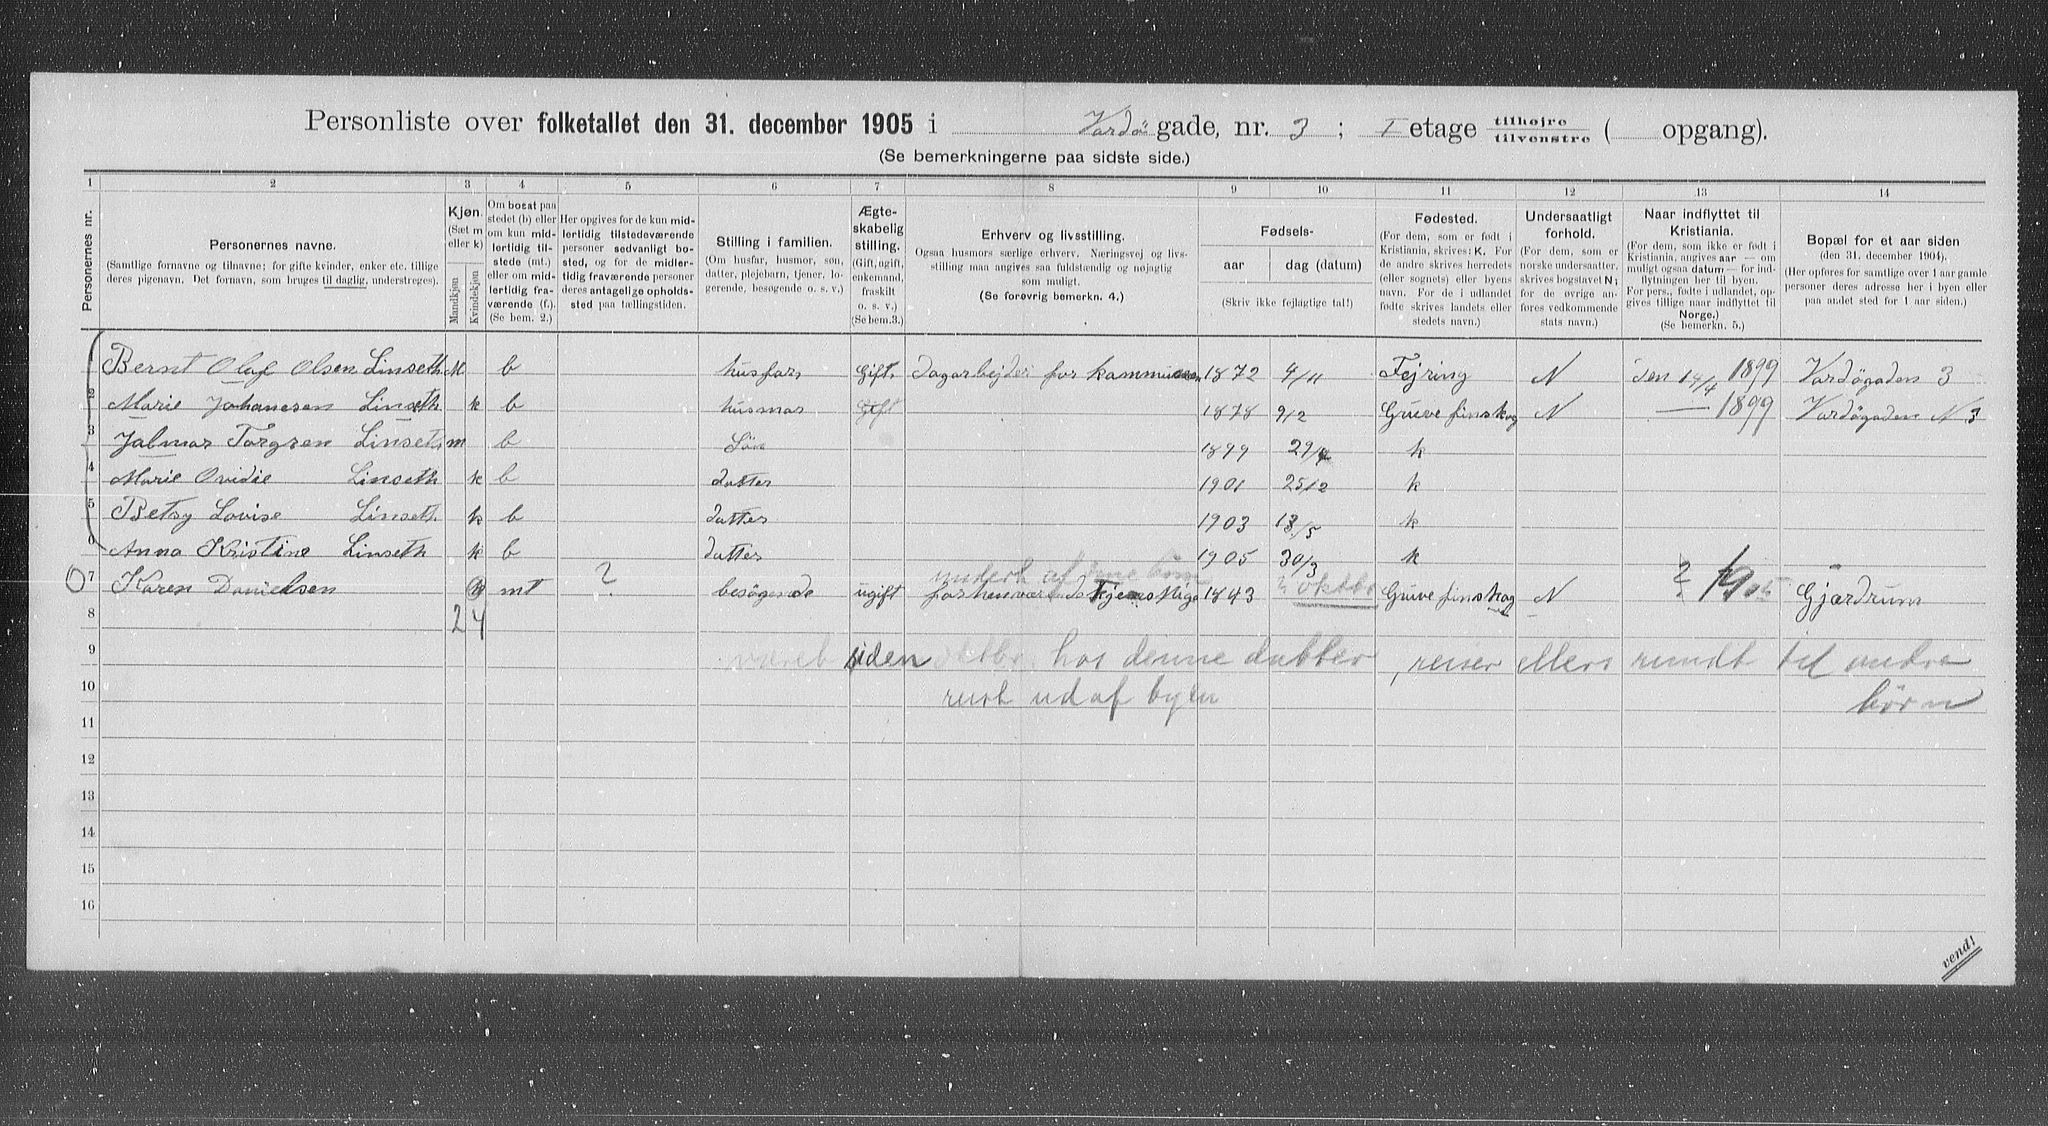 Personliste over folketallet den 31. december 1905 i Vardö gade, nr. 3 ; I etage tilhøjre tilvenstre ( opgang).
(Se bemerkningerne paa sidste side.)
1 2 3 4 5 6 7 8 9 10 11 12 13 14
Personernes nr.
Personernes navne.
(Samtlige fornavne og tilnavne; for gifte kvinder, enker etc. tillige
deres pigenavn. Det fornavn, som bruges til daglig, understreges).
Kjøn.
(Sæt m
eller k)
Mandkjøn
Kvindekjøn
Om bosat paa
stedet (b) eller
om kun mid-
lertidig til-
stede (mt.)
eller om mid-
lertidig fra-
værende (f.).
(Se bem. 2.)
Her opgives for de kun mid-
lertidig tilstedeværende
personer sedvanlig bo-
sted, og for de midler-
tidig fraværende personer
deres antagelige opholds-
sted paa tællingstiden.
Stilling i familien.
(Om husfar, husmor, søn,
datter, plejebarn, tjener, lo-
gerende, besøgende o. s. v.)
Ægte-
skabelig
stilling.
(Gift, ugift,
enkemand,
fraskilt
o. s. v.)
(Se bem.3.)
Erhverv og livsstilling.
Ogsaa husmors særlige erhverv. Næringsvej og livs-
stilling maa angives saa fuldstændig og nøjagtig
som muligt.
(Se forøvrig bemerkn. 4.)
Fødsels-
aar
dag (datum)
(Skriv ikke fejlagtige tal!)
Fødested.
(For dem, som er født i
Kristiania, skrives: K. For
de andre skrives herredets
(eller sognets) eller byens
navn. For de i udlandet
fødte skrives landets eller
stedets navn.)
Undersaatligt
forhold.
(For dem, som er
norske undersaatter,
skrives bogstavet N;
for de øvrige an-
føres vedkommende
stats navn.)
Naar indflyttet til
Kristiania.
(For dem, som ikke er født i
Kristiania, angives aar — om
muligt ogsaa datum — for ind-
flytningen her til byen.
For pers., fødte i udlandet, op-
gives tillige naar indflyttet til
Norge.)
(Se bemerkn. 5.)
Bopæl for et aar siden
(den 31. december 1904).
(Her opføres for samtlige over 1 aar gamle
personer deres adresse her i byen eller
paa andet sted for 1 aar siden.)
1 Bernt Olaf Olsen Linseth M b husfar Gift dagarbejder for kammunen 1872 4/11 Fejring N den 14/4 1899 Vardøgaden 3
2 Marie Johanesen Linseth k b husmor Gift 1878 9/2 Gruve finskog N — 1899 Vardøgaden N 3
3 Jalmar Torgren Linseth m b Sön 1899 29/4 k
4 Marie Ovidie Linseth k b datter 1901 25/12 k
5 Betsy Lovise Linseth k b datter 1903 13/5 k
6 Anna Kristine Linseth k b datter 1905 30/3 k
underh af sine børn
7 Karen Danielsen k mt ? besøgende ugift forhenværende Tjenestpige 1843 ? oktbr Gruve finskog N ? 1905 Gjærdrum
8 2 4
9 været siden oktbr. hos denne datter, reiser ellers rundt til andre
10 rust ud af byen børn
11
12
13
14
15
16
vend!